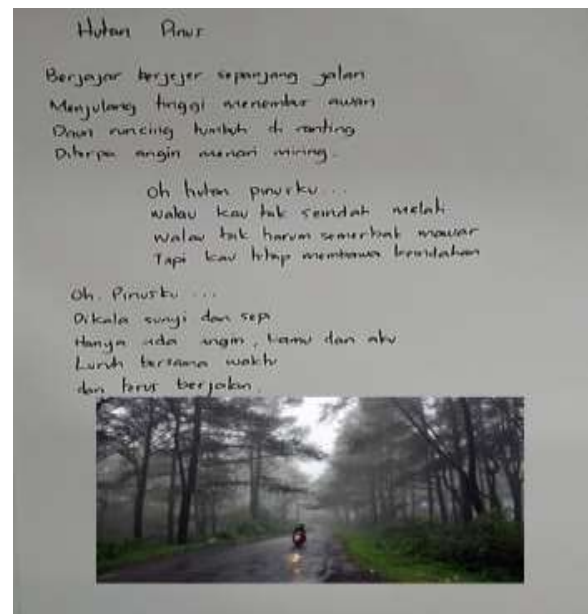 Hutan Pinus
Berjajar berjejer sepanjang jalan
Menjulang tinggi menembus awan
Daun runcing tumbuh di ranting
Diterpa angin menari miring.
Oh hutan pinusku...
walau kau tak seindah melati
walau tak harum semerbak mawar
Tapi kau tetap membawa keindahan
Oh. Pinusku ...
Dikala sunyi dan sepi
Hanya ada angin, kamu dan aku
Luruh bersama waktu
dan terus berjalan.